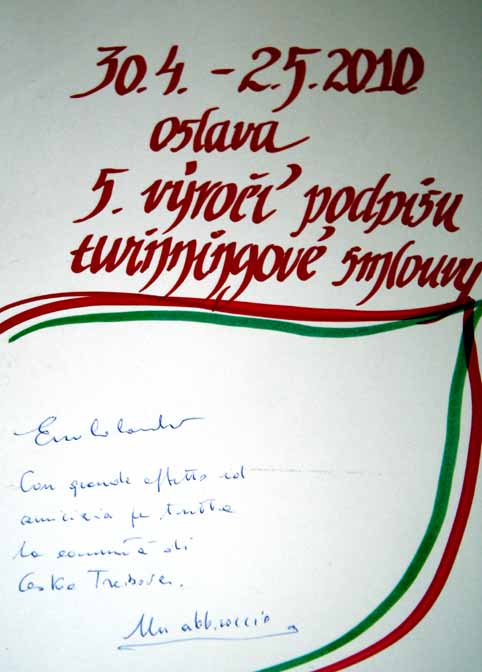 30.4. - 2.5.2010
oslava
5. výročí podpisu
twinningové smlouvy
Con grande affetto ed
amicizia per tutta
la comunità di
Ceska Trebova.
Un abbraccio